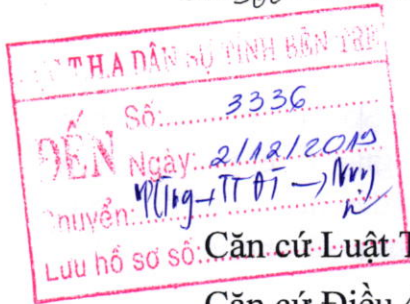 T.H.A DÂN SỰ TỈNH BẾN TRE
ĐẾN
Số: 3336
Ngày: 2/12/2019
Chuyển:
Lưu hồ sơ số:
Căn cứ Luật T
Căn cứ Điều